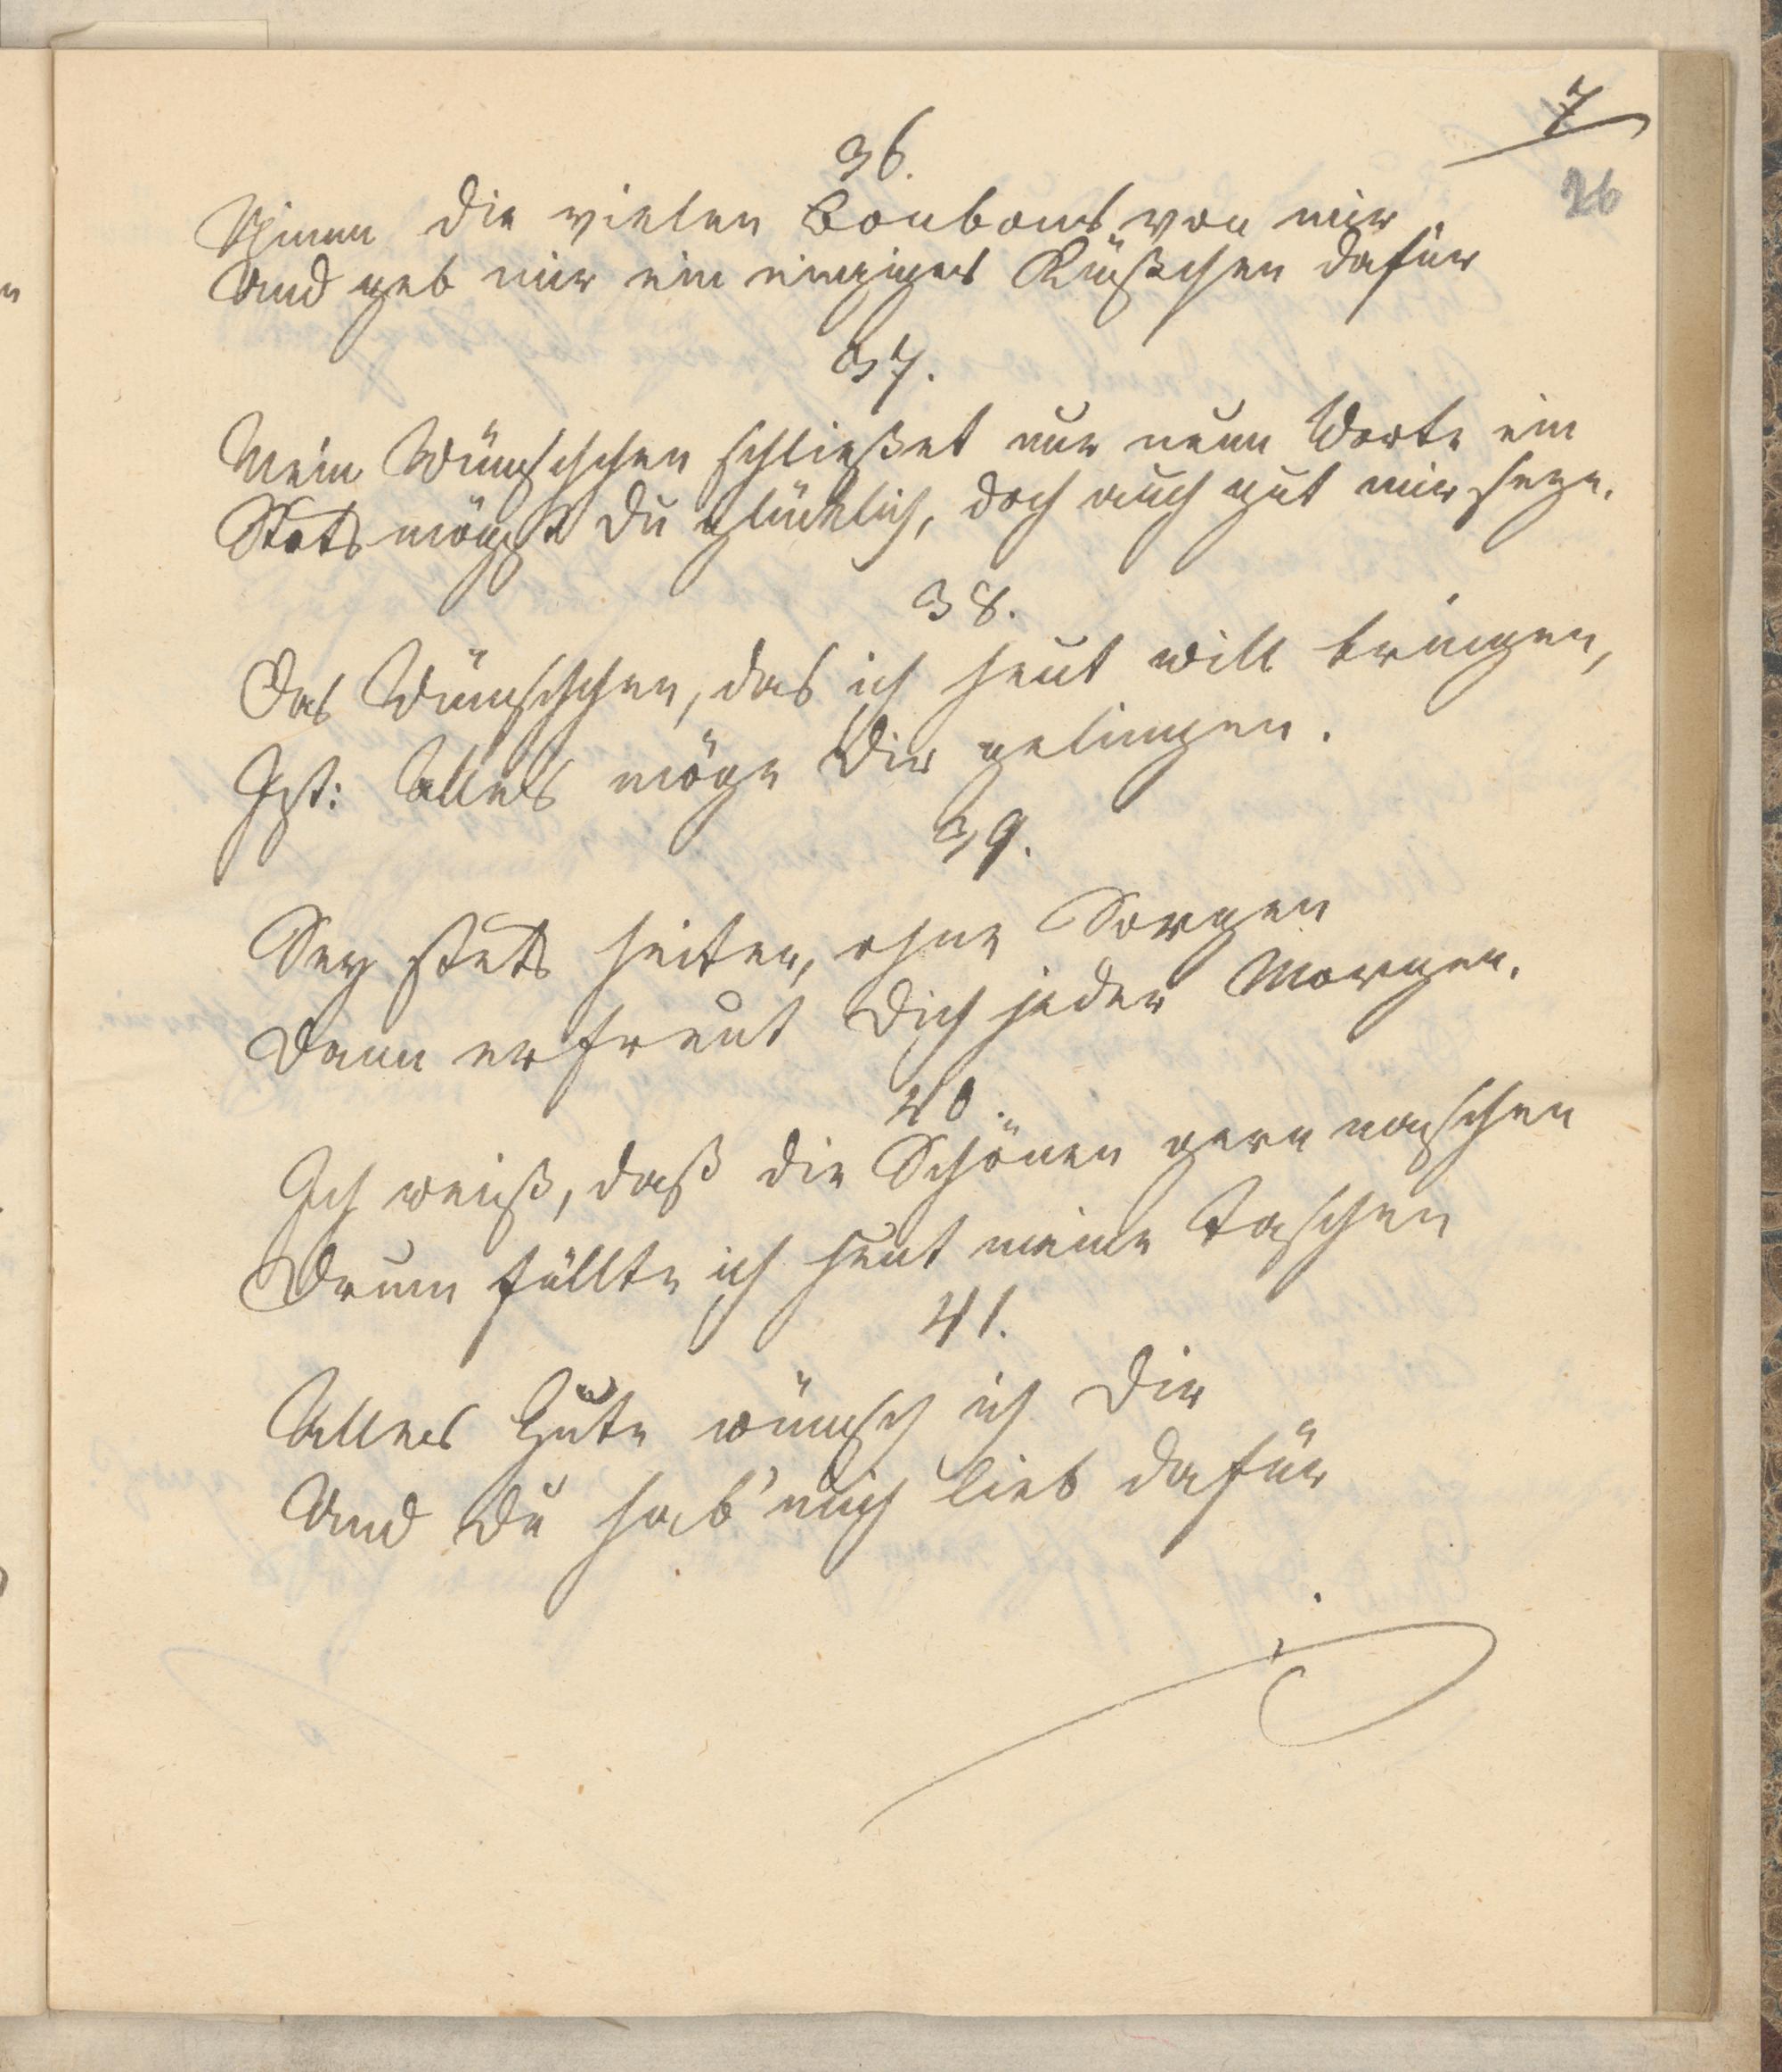 7
26
36.
Nimm die vielen Bonbons von mir,
Und geb mir ein einziges Küßchen dafür
37.
Mein Wünschchen schließet nur neun Worte ein
Stets mögst Du glücklich, doch auch gut mir seyn.
38.
Das Wünschchen, das ich heut will bringen,
Ist: Alles möge Dir gelingen.
39.
Sey stets heiter, ohne Sorgen
Dann erfreut Dich jeder Morgen.
40.
Ich weiß, daß die Schönen gern naschen
Drum füllte ich heut meine Taschen
41.
Alles Gute wünsch ich Dir
Und Du hab' mich lieb dafür